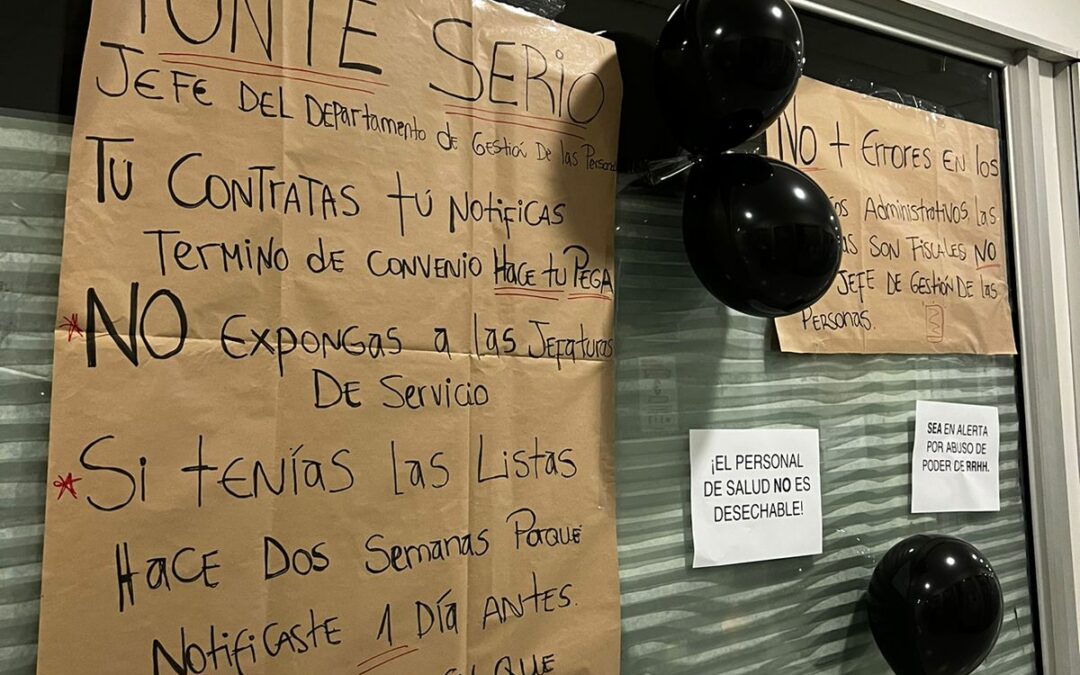 PONTE SERIO
JEFE DEL DEPARTAMENTO DE GESTIÓN DE LAS
TU CONTRATAS TÚ NOTIFICAS
TERMINO DE CONVENIO HACE TU PEGA
*NO EXPONGAS A LAS JEFATURAS
DE SERVICIO
*SI TENÍAS LAS LISTAS
HACE DOS SEMANAS PORQUÉ
NOTIFICASTE 1 DÍA ANTES.
QUE
NO + ERRORES EN LOS
ADMINISTRATIVOS, LAS
SON FISCALES NO
JEFE DE GESTIÓN DE LAS
PERSONAS.
¡EL PERSONAL
DE SALUD NO ES
DESECHABLE!
SEA EN ALERTA
POR ABUSO DE
PODER DE RRHH.